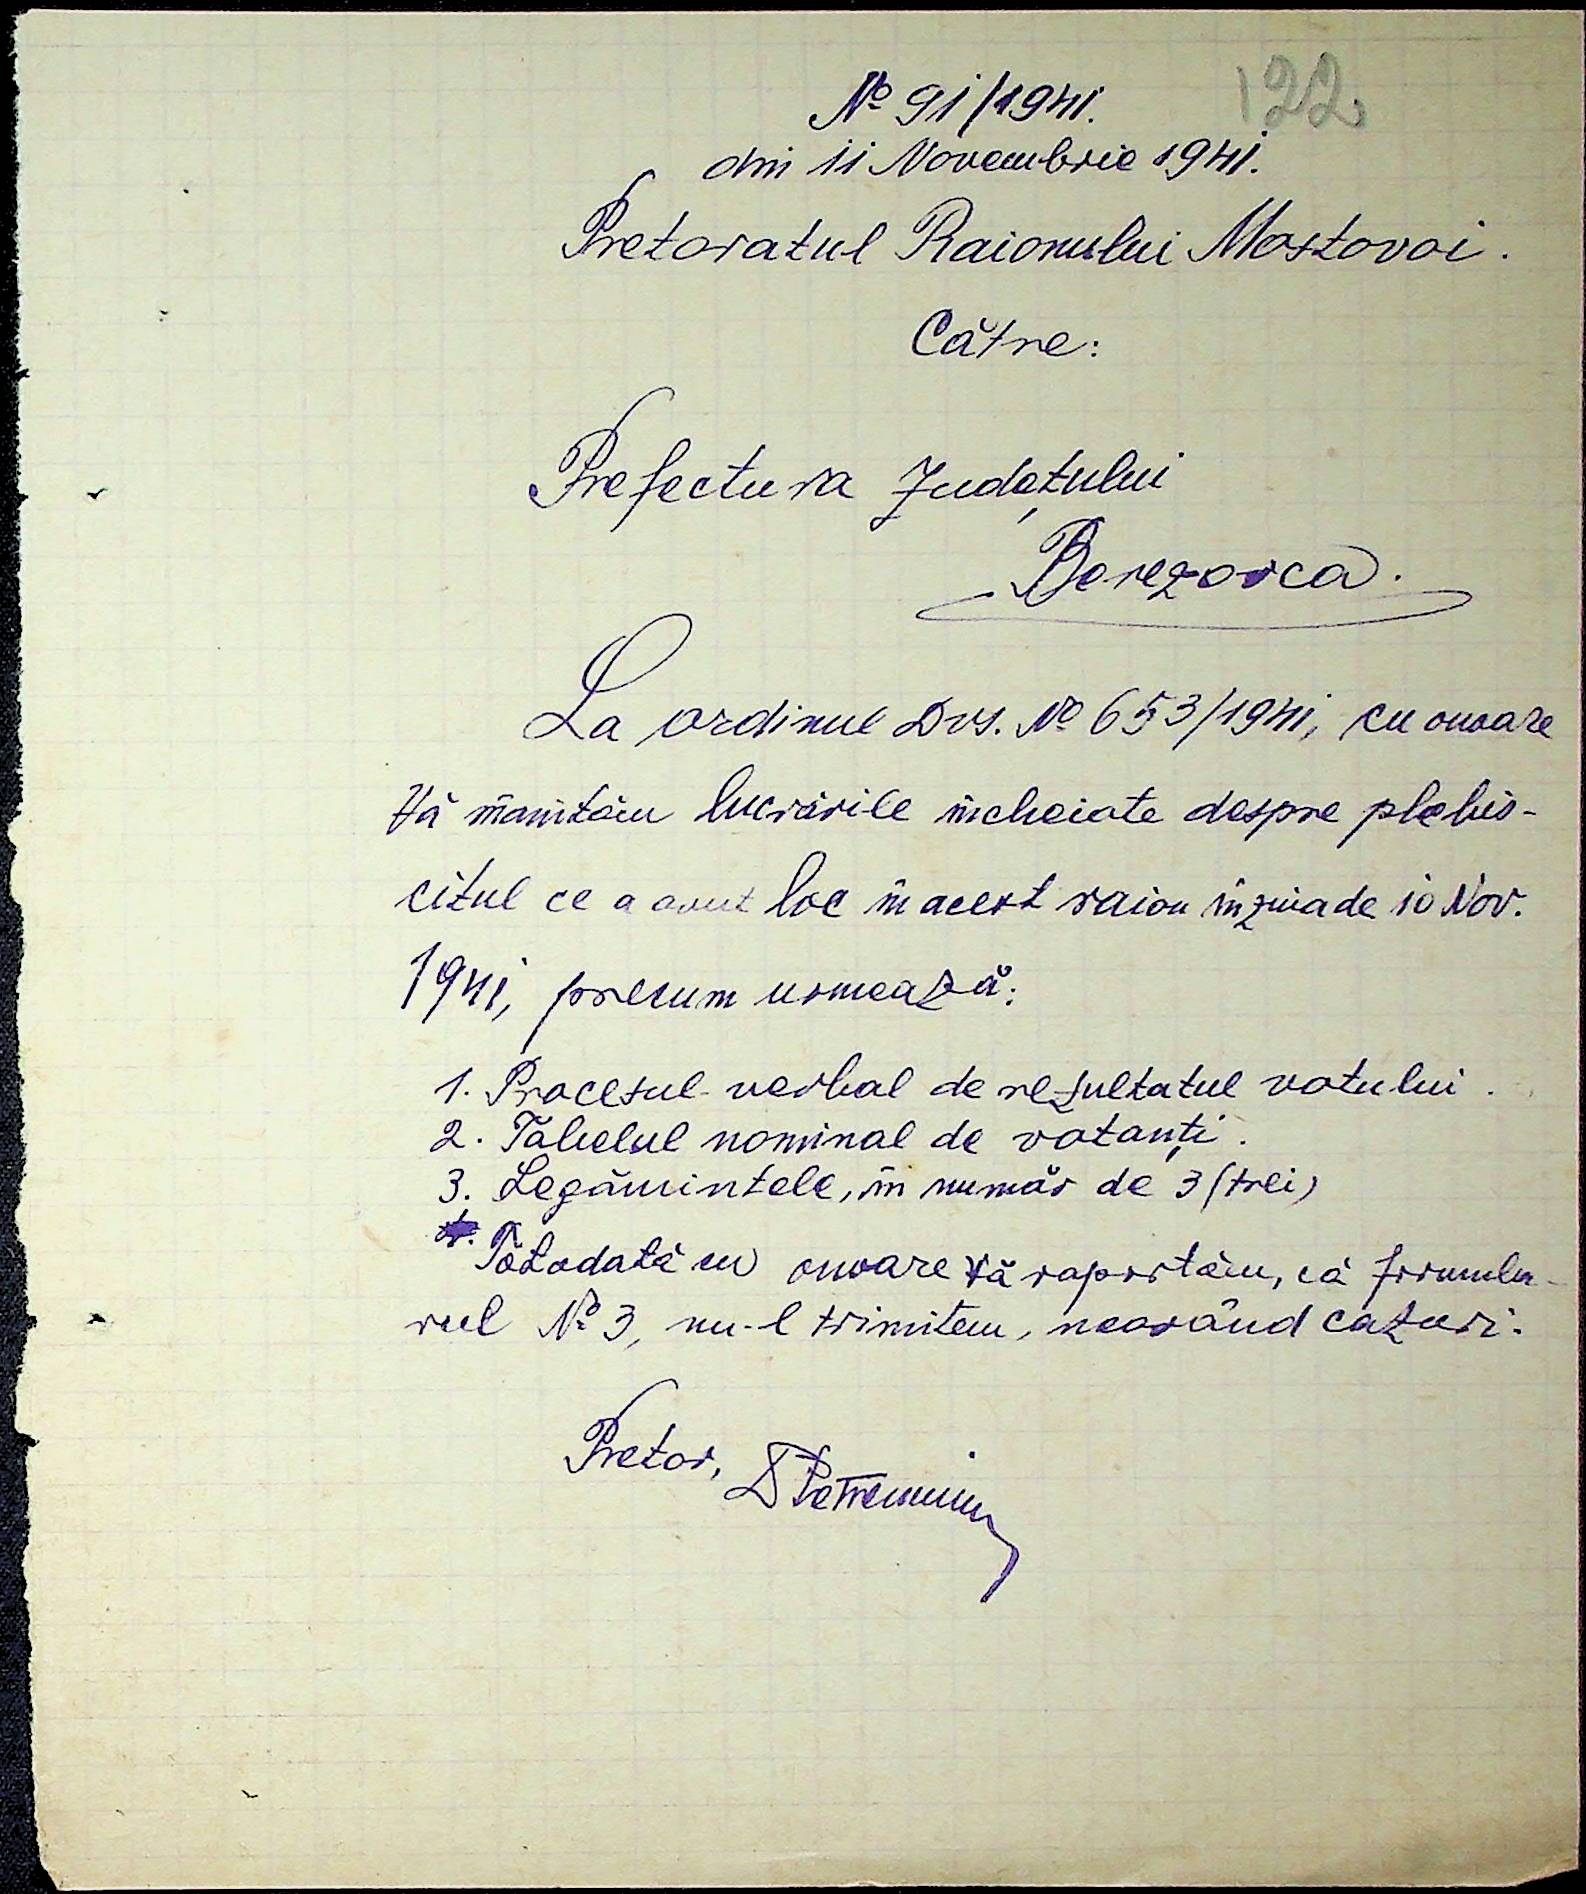 122
№ 91/1941.
din 11 Novembrie 1941.
Pretoratul Raionului Mostovoi.
Cătne:
Prefectura Județului
Berezovca.
La ordinul Dvs. № 653/1941, cu onoare
Vă înnintăm lucrările încheiate despre plebis-
citul ce a avut loc în acest raion în ziua de 10 Nov.
1941, precum urmează:
1. Procesul-verbal de rezultatul votului.
2. Tabelul nominal de votanți.
3. Legămintele, în număr de 3 (trei)
Totodată cu onoare Vă raportăm, că formula-
rul № 3, nu-l trimitem, neavând cazuri.
Pretor,